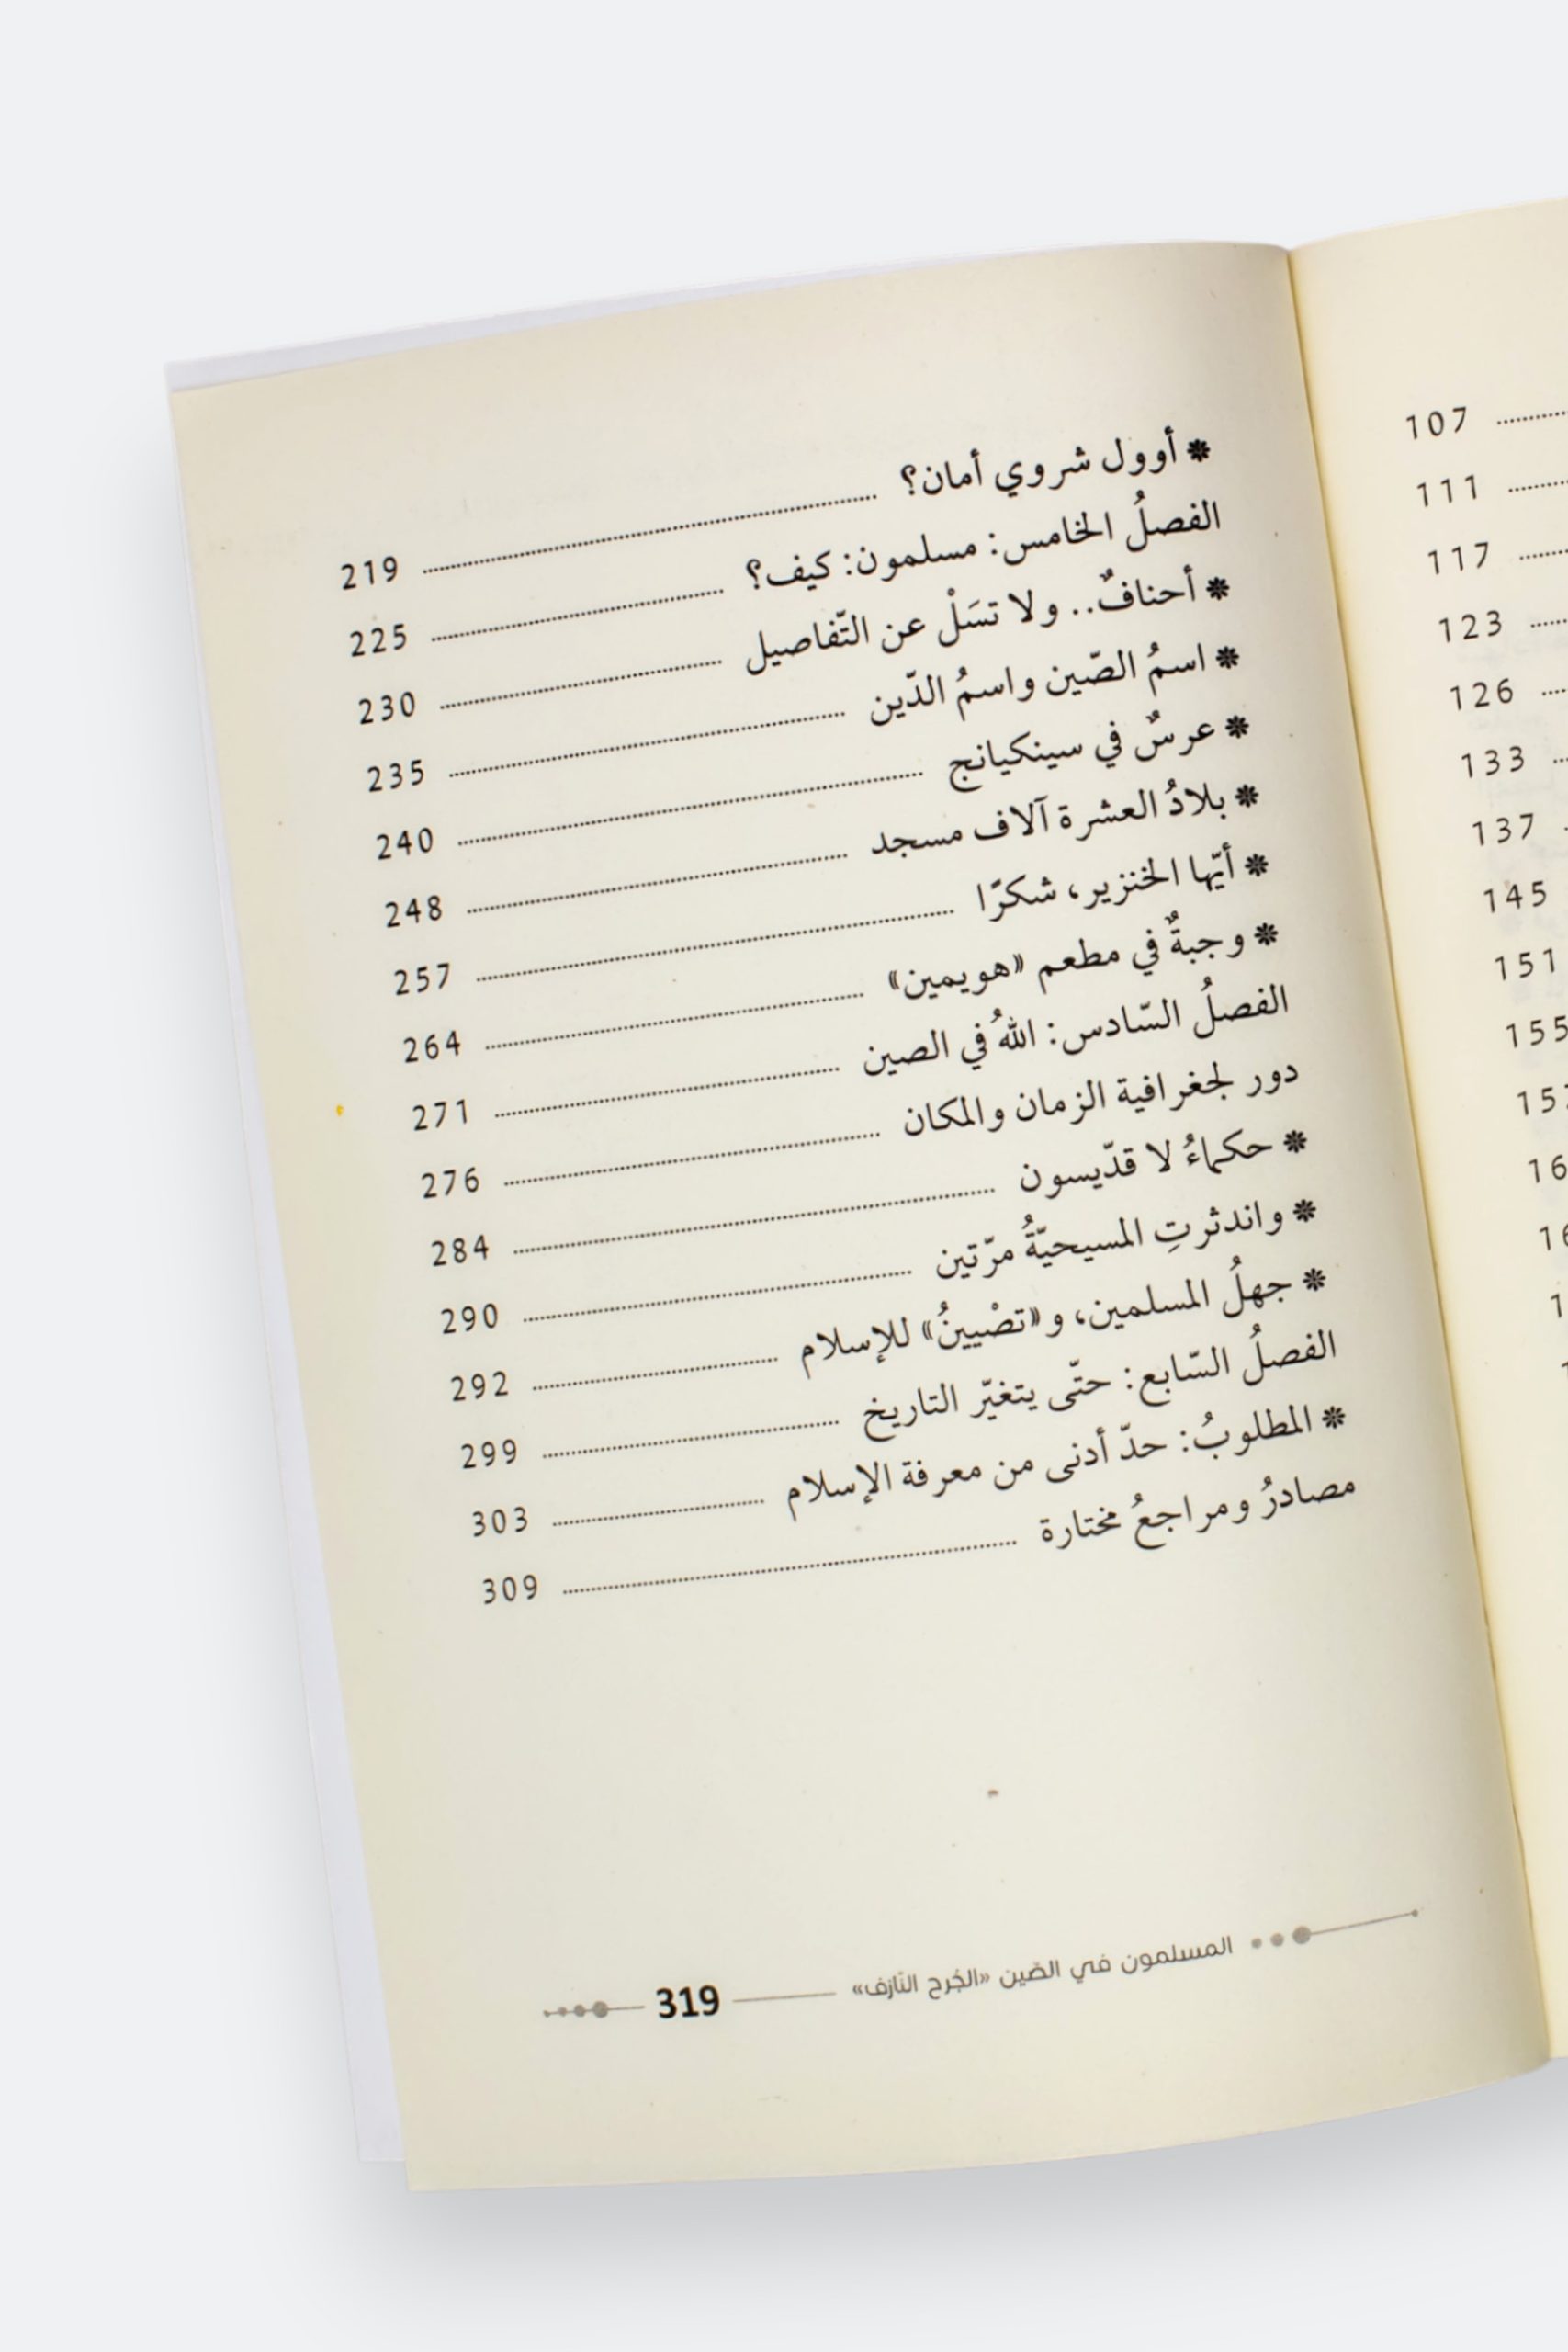 107
111
117
123
126
133
137
145
151
155
* أوول شروي أمان؟ 219
الفصلُ الخامس: مسلمون: كيف؟ 225
* أحنافٌ.. ولا تسَلْ عن التّفاصيل 230
* اسمُ الصّين واسمُ الدّين 235
* عرسٌ في سينكيانج 240
* بلادُ العشرة آلاف مسجد 248
* أيّها الخنزير، شكرًا 257
* وجبةٌ في مطعم «هويمين» 264
الفصلُ السّادس: اللهُ في الصين 271
دور لجغرافية الزمان والمكان 276
* حكماءُ لا قدّيسون 284
* واندثرتِ المسيحيّةُ مرّتين 290
* جهلُ المسلمين، و«تصْيينُ» للإسلام 292
الفصلُ السّابع: حتّى يتغيّر التاريخ 299
* المطلوبُ: حدّ أدنى من معرفة الإسلام 303
مصادرُ ومراجعُ مختارة 309
المسلمون في الصّين «الجُرح النّازف» 319